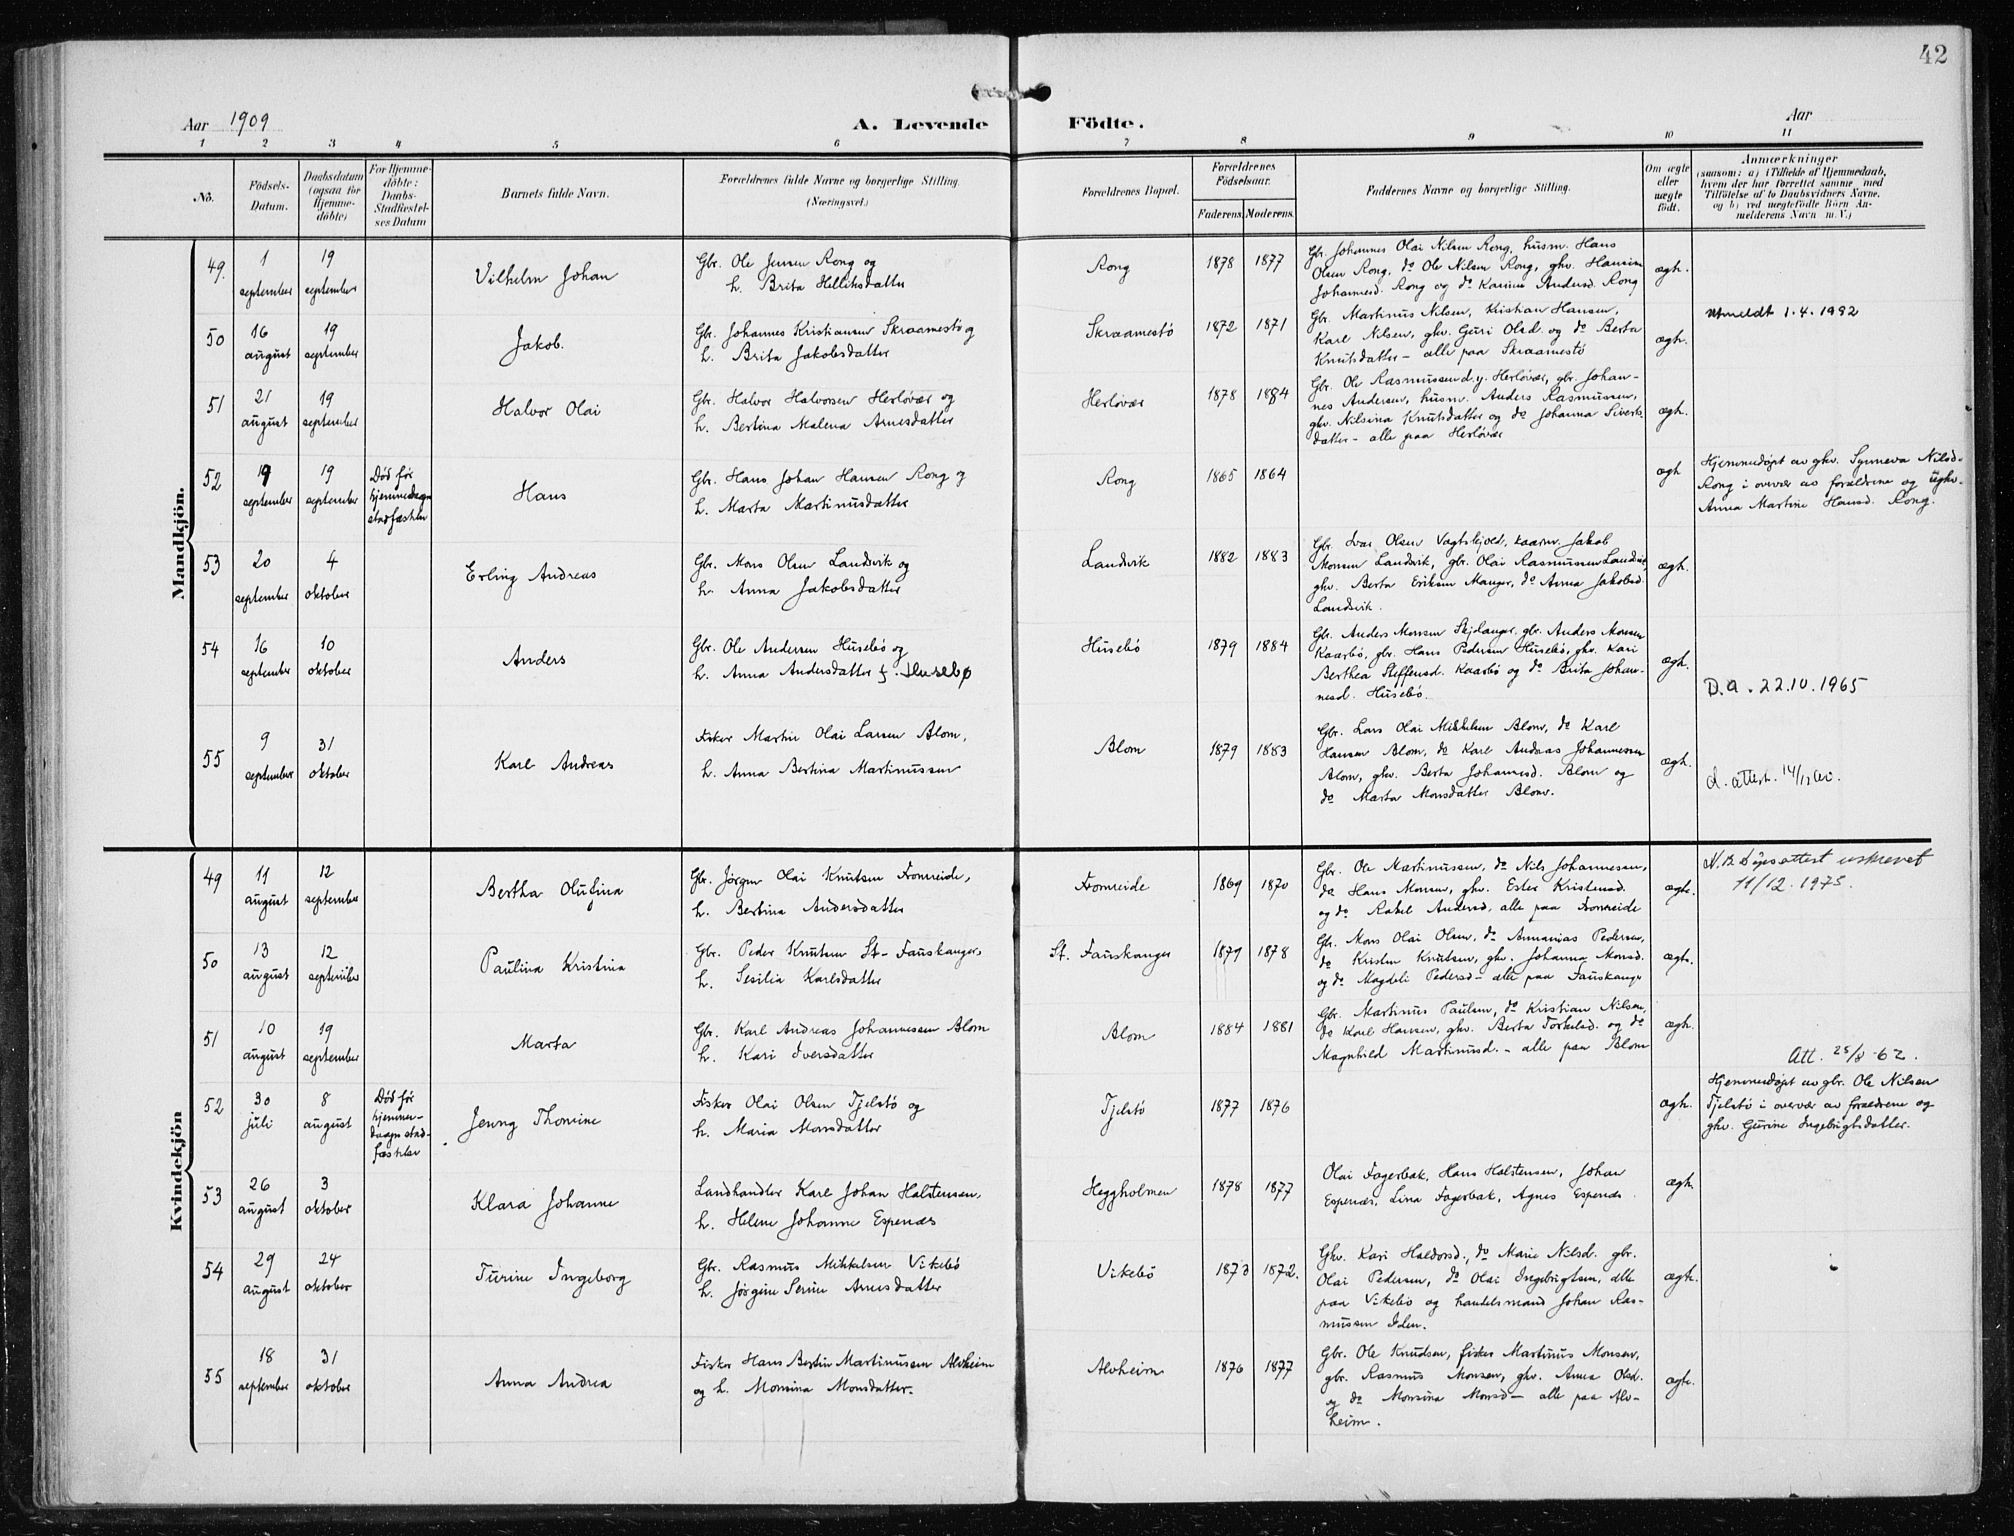 42
Aar 1909
A. Levende Födte.
Aar
1 2 3 4 5 6 7 8 9 10 11
No.
Födsels-
Datum.
Daabsdatum
(ogsaa for
Hjemme-
döbte)
For Hjemme-
döbte:
Daabs-
Stadfæstel-
ses Datum
Barnets fulde Navn.
Forældrenes fulde Navne og borgerlige Stilling.
(Næringsvei.)
Forældrenes Bopæl.
Forældrenes
Födselsaar.
Faderens. Moderens.
Faddernes Navne og borgerlige Stilling.
Om ægte
eller
uægte
födt.
Anmærkninger
(saasom: a) i Tilfælde af Hjemmedaab,
hvem der har forrettet samme med
Tilföielse af to Daabsvidners Navne,
og b) ved uægtefödte Börn An-
melderens Navn m. V.)
Mandkjön.
49. 1 september
19 september
Vilhelm Johan
Gbr. Ole Jensen Rong og
h. Brita Helliksdatter
Rong 1878 1877
Gbr. Johannes Olai Nilsen Rong, husm. Hans
Olsen Rong, do Ole Nilsen Rong, ghv. Hansine
Johannesd. Rong og do Karine Andersd. Rong
ægte.
50 16 august
19 september
Jakob.
Gbr. Johannes Kristiansen Skraamestø og
h. Brita Jakobsdatter
Skraamestö 1872 1871
Gbr. Martinus Nilsen, Kristian Hansen,
Karl Nilsen, ghv. Guri Olsd. og do Berta
Knutsdatter – alle paa Skraamestö
ægte.
Utmeldt 1.4.1992
51 21 august
19 september
Halvor Olai
Gbr. Halvor Halvorsen Herlövær og
h. Bertina Malena Arnesdatter
Herlövær 1878 1884
Gbr. Ole Rasmussen d.y. Herlövær, gbr. Johan-
nes Andersen, husm. Anders Rasmussen,
ghv. Nilsina Knutsdatter og do Johanna Siverts-
datter – alle paa Herlövær
ægte.
52 19 september
19 september
Död før
hjemmedaapen
stadfæstes
Hans
Gbr. Hans Johan Hansen Rong og
h. Marta Martinusdatter
Rong 1865 1864
ægte
Hjemmedøpt av ghv. Synneva Nilsd.
Rong i overvær av forældrene og ughv.
Anna Martine Hansd. Rong.
53 20 september
4 oktober
Erling Andreas
Gbr. Mons Olsen Landsvik og
h. Anna Jakobsdatter
Landsvik 1882 1883
Gbr. Ivar Olsen Vagtskjold, kaarm. Jakob
Monsen Landsvik, gbr. Olai Rasmussen Landsvik,
ghv. Berta Eriksen Manger, do Anna Jakobsd.
Landsvik.
ægte.
54 16 september
10 oktober
Anders
Gbr. Ole Andersen Husebø og
h. Anna Andersdatter f. Husebø
Husebö 1879 1884
Gbr. Anders Monsen Skjelanger, gbr. Anders Monsen
Kaarbö, gbr. Hans Pedersen Husebö, ghv. Kari
Berthea Steffensd. Kaarbö og do Brita Johan-
nesd. Husebö.
ægte.
D.a. 22.10.1965
55 9 september
31 oktober
Karl Andreas
Fisker Martin Olai Larsen Blom,
h. Anna Bertina Martinussen
Blom 1879 1883
Gbr. Lars Olai Mikkelsen Blom, do Karl
Hansen Blom, do Karl Andreas Johannessen
Blom, ghv. Berta Johannesd. Blom og
do Marta Monsdatter Blom.
ægte.
d. attest. 14/12
Kvindekjön
49 11 august
12 september
Bertha Olufina
Gbr. Jörgen Olai Knutsen Fromreide,
h. Bertina Andersdatter
Fromreide 1869 1870
Gbr. Ole Martinussen, do Nils Johannesen,
do Hans Monsen, ghv. Ester Kristensd.
og do Rakel Andersd. alle paa Fromreide
ægte.
N.B. Døpsattest utskrevet
11/12.1973.
50 13 august
12 september
Paulina Kristina
Gbr. Peder Knutsen St. Fauskanger,
h. Sesilia Karlsdatter
St. Fauskanger 1879 1878
Gbr. Mons Olai Olsen, do Annanias Pedersen,
do Kristen Knutsen, ghv. Johanna Monsd.
og do Magdeli Pedersd – alle paa Fauskanger
ægte.
51 10 august
19 september
Marta
Gbr. Karl Andreas Johannesen Blom
h. Kari Iversdatter
Blom 1884 1881
Gbr. Martinus Paulsen, do Kristian Nilsen,
do Karl Hansen, ghv. Berta Torkelsd. og do
Magnhild Martinusd. – alle paa Blom
ægte.
Att. 25/8-62.
52 30 juli
8 august
Död før
hjemme-
daapen stad-
fæstes
Jenny Thomine
Fisker Olai Olsen Tjelstö og
h. Maria Monsdatter
Tjelstö 1877 1876
ægte.
Hjemmedøpt av gbr. Ole Nilsen
Tjelstö i overvær av forældrene og
ghv. Gurine Ingebrigtsdatter.
53 26 august
3 oktober
Klara Johanne
Landhandler Karl Johan Halstensen,
h. Helene Johanne Espenæs
Heggholmen 1878 1877
Olai Fagerbak, Hans Halstensen, Johan
Espenæs, Lina Fagerbak, Agnes Espenæs
ægte.
54 29 august
24 oktober
Turine Ingeborg
Gbr. Rasmus Mikkelsen Vikebö
h. Jørgine Serine Arnesdatter
Vikebö 1873 1872.
Ghv. Kari Haldorsd., do Marie Nilsd. gbr.
Olai Pedersen, do Olai Ingebrigtsen, alle
paa Vikebö og handelsmand Johan Ras-
mussen Iden.
ægte.
55 18 september
31 oktober
Anna Andrea
Fisker Hans Bertin Martinussen Alvheim
og h. Monsina Monsdatter.
Alvheim 1876 1877
Gbr. Ole Knudsen, fisker Martinus Monsen,
gbr. Rasmus Monsen, ghv. Anna Olsd.
og do Monsina Monsd – alle paa Alv-
heim.
ægte.